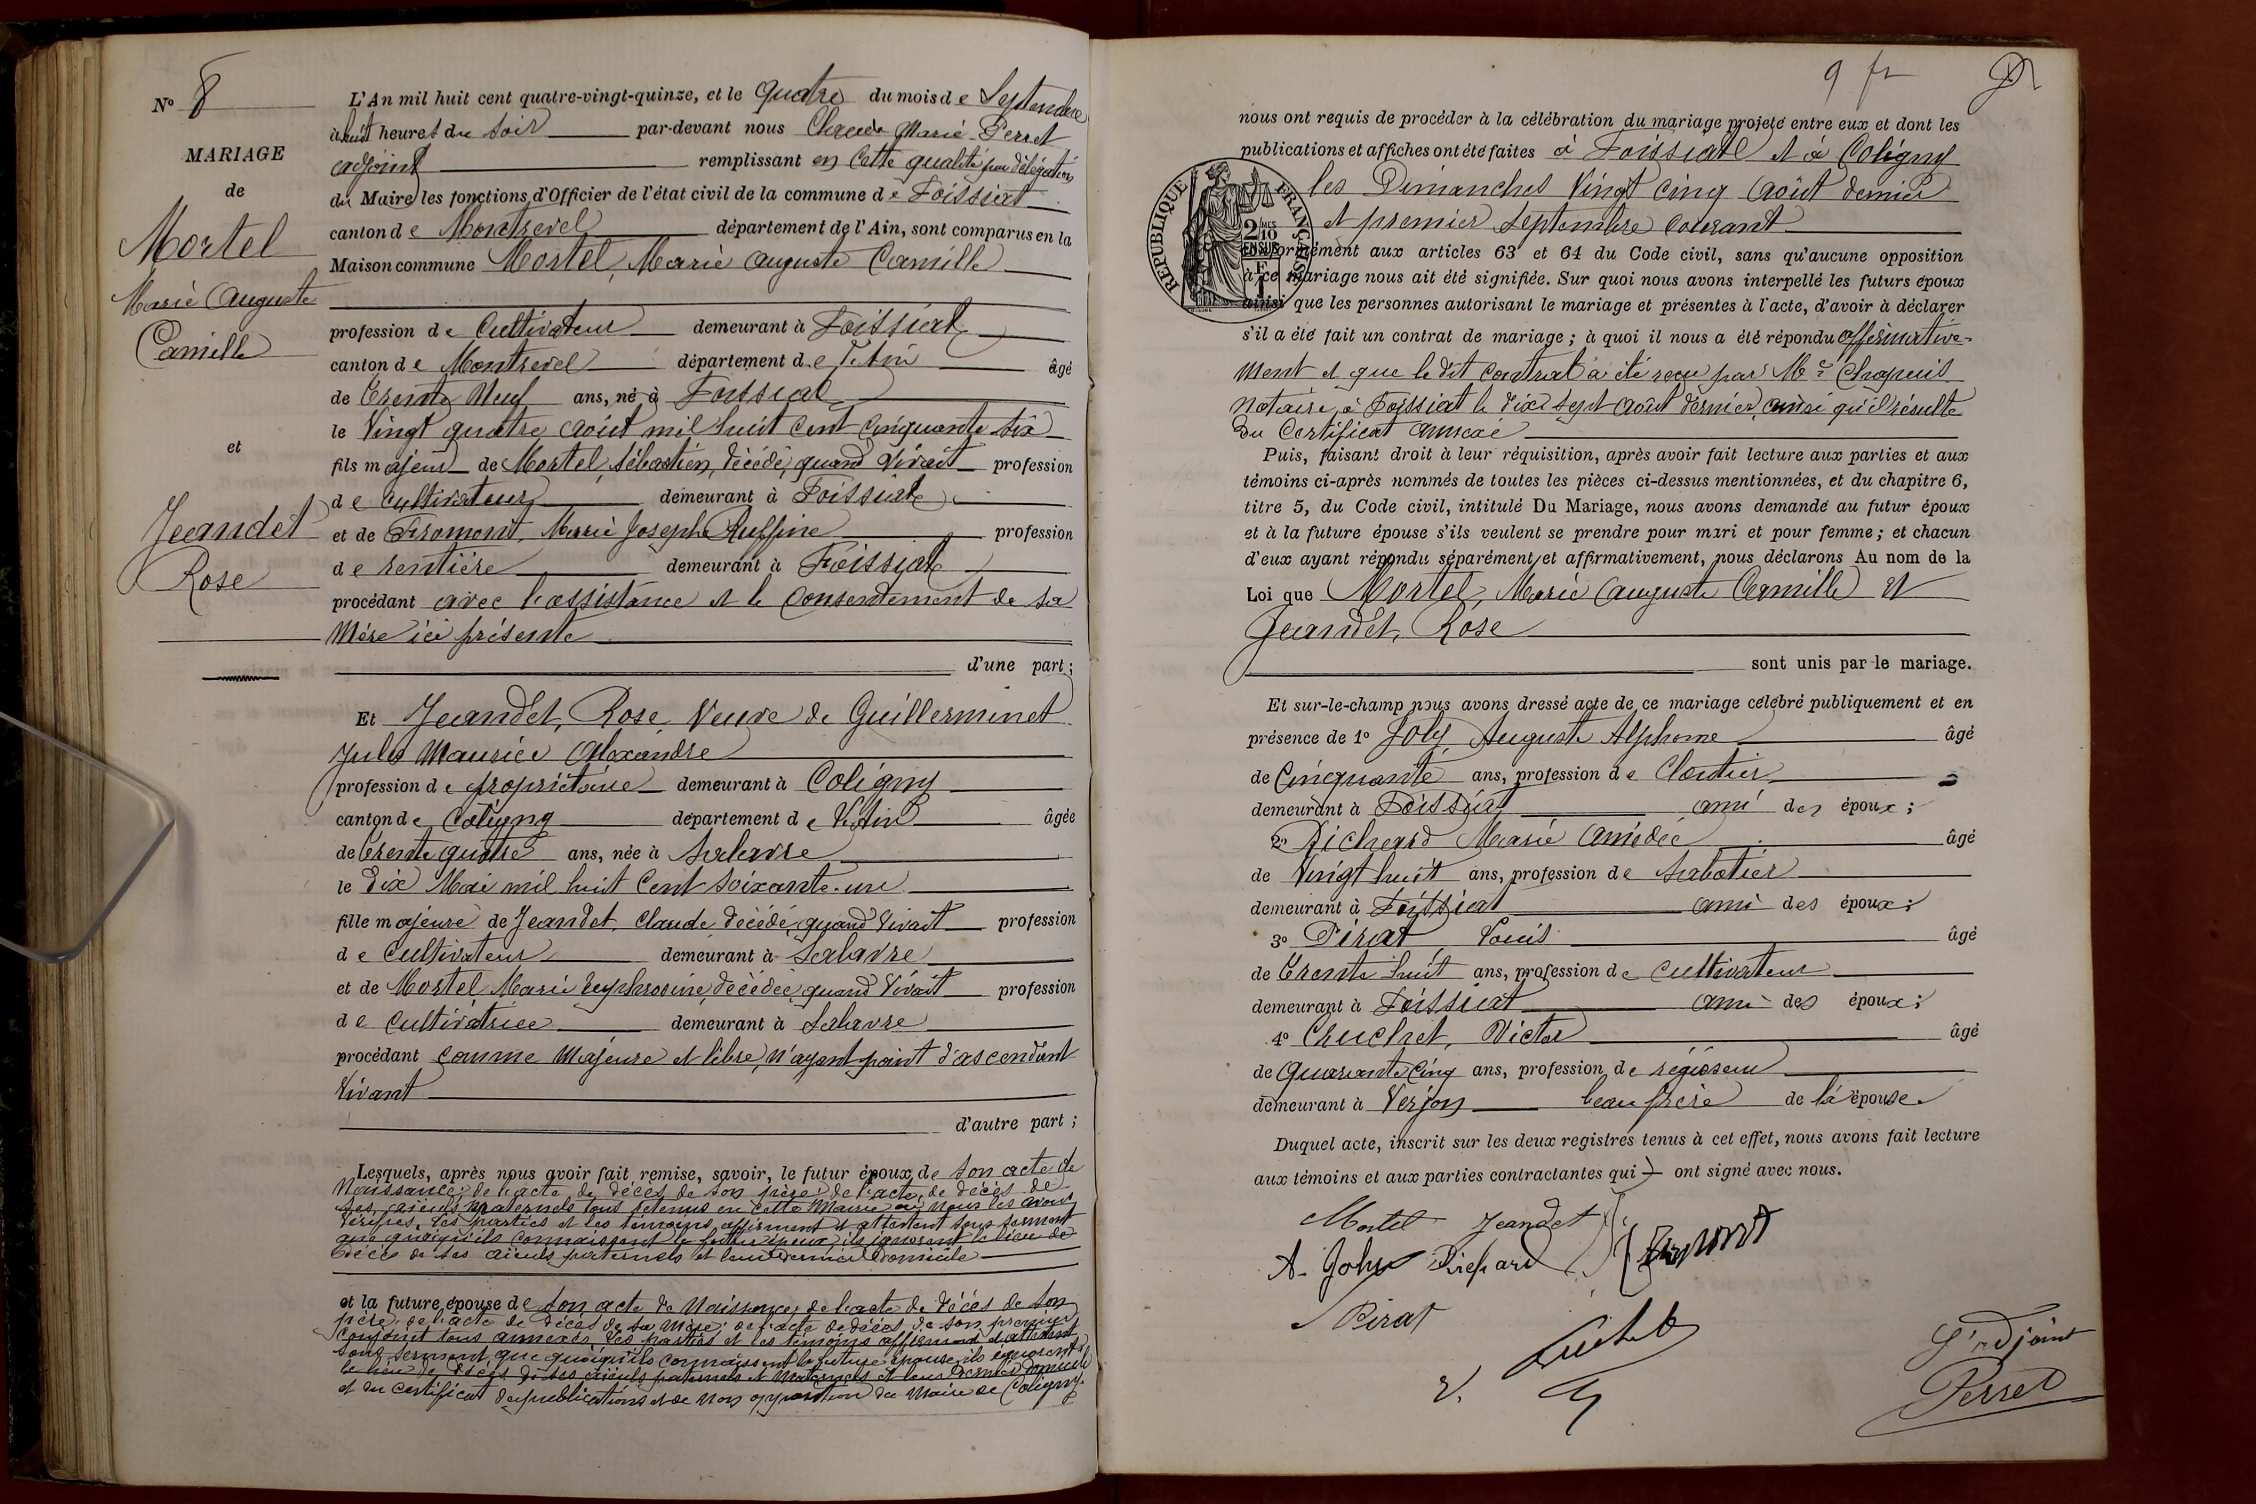 N° 8
MARIAGE
de
Mortel
Marie Auguste
Camille
et
Jeandet
Rose
L'An mil huit cent quatre-vingt-quinze, et le quatre du mois de Septembre
à huit heures du soir par-devant nous Claude Marie Perret
adjoint remplissant en cette qualité par délégation
du Maire les fonctions d'Officier de l'état civil de la commune de Foissiat
canton de Montrevel département de l'Ain, sont comparus en la
Maison commune Mortel, Marie Auguste Camille
profession de Cultivateur demeurant à Foissiat
canton de Montrevel département de l'Ain âgé
de trente neuf ans, né à Foissiat
le Vingt quatre août mil huit cent cinquante six
fils majeur de Mortel, Sébastien, décédé, quand vivait profession
de cultivateur demeurant à Foissiat
et de Fromont, Marie Josephe Ruffine profession
de rentière demeurant à Foissiat
procédant avec l'assistance et le consentement de sa
Mère ici présente
d'une part;
Et Jeandet, Rose, Veuve de Guillerminet
Jules Maurice Alexandre
profession de propriétaire demeurant à Coligny
canton de Coligny département de l'Ain âgée
de trente quatre ans, née à Salavre
le dix Mai mil huit cent soixante-un
fille majeure de Jeandet, Claude, décédé, quand vivait profession
de Cultivateur demeurant à Salavre
et de Mortel Marie Euphrosine, décédée, quand vivait profession
de cultivatrice demeurant à Salavre
procédant comme Majeure et libre, n'ayant point d'ascendant
Vivant
d'autre part;
Lesquels, après nous avoir fait remise, savoir, le futur époux de son acte de
Naissance; de l'acte de décès de son père; de l'acte de décès de
ses aïeuls maternels tous retenus en cette Mairie où nous les avons
vérifiés. Les parties et les témoins affirment et attestent sous serment
que quoiqu'ils connaissent le futur époux, ils ignorent le lieu de
décès de ses aïeuls paternels et leur dernier domicile
et la future épouse de son acte de Naissance; de l'acte de décès de son
père; de l'acte de décès de sa mère; de l'acte de décès de son premier
conjoint tous annexés. Les parties et les témoins affirment et attestent
sous serment, que quoiqu'ils connaissent la future épouse, ils ignorent
le lieu de décès de ses aïeuls paternels et maternels et leur dernier domicile
et du certificat de publications et de non opposition du Maire de Coligny.
9 fr
nous ont requis de procéder à la célébration du mariage projeté entre eux et dont les
publications et affiches ont été faites à Foissiat et à Coligny
les Dimanches Vingt cinq août dernier
et premier Septembre courant
conformément aux articles 63 et 64 du Code civil, sans qu'aucune opposition
à ce mariage nous ait été signifiée. Sur quoi nous avons interpellé les futurs époux
ainsi que les personnes autorisant le mariage et présentes à l'acte, d'avoir à déclarer
s'il a été fait un contrat de mariage; à quoi il nous a été répondu affirmative-
ment et que le dit contrat a été reçu par Me Chapuis
Notaire à Foissiat le dix sept août dernier, ainsi qu'il résulte
du Certificat annexé
Puis, faisant droit à leur réquisition, après avoir fait lecture aux parties et aux
témoins ci-après nommés de toutes les pièces ci-dessus mentionnées, et du chapitre 6,
titre 5, du Code civil, intitulé Du Mariage, nous avons demandé au futur époux
et à la future épouse s'ils veulent se prendre pour mari et pour femme; et chacun
d'eux ayant répondu séparément et affirmativement, nous déclarons Au nom de la
Loi que Mortel, Marie Auguste Camille et
Jeandet, Rose
sont unis par le mariage.
Et sur-le-champ nous avons dressé acte de ce mariage célébré publiquement et en
présence de 1° Joly, Auguste Alphonse âgé
de Cinquante ans, profession de Cloutier
demeurant à Foissiat ami des époux;
2° Richard Marie Amédée âgé
de Vingt huit ans, profession de sabotier
demeurant à Foissiat ami des époux;
3° Pirat, Louis âgé
de trente huit ans, profession de cultivateur
demeurant à Foissiat ami des époux;
4° Cruchet, Victor âgé
de quarante cinq ans, profession de régisseur
demeurant à Verjon beau frère de la épouse
Duquel acte, inscrit sur les deux registres tenus à cet effet, nous avons fait lecture
aux témoins et aux parties contractantes qui ont signé avec nous.
Mortel Jeandet R.
A. Joly Richard Fromont
Pirat
V. Cruchet
L'adjoint
Perret
RÉPUBLIQUE FRANÇAISE
2/10
EN SUS